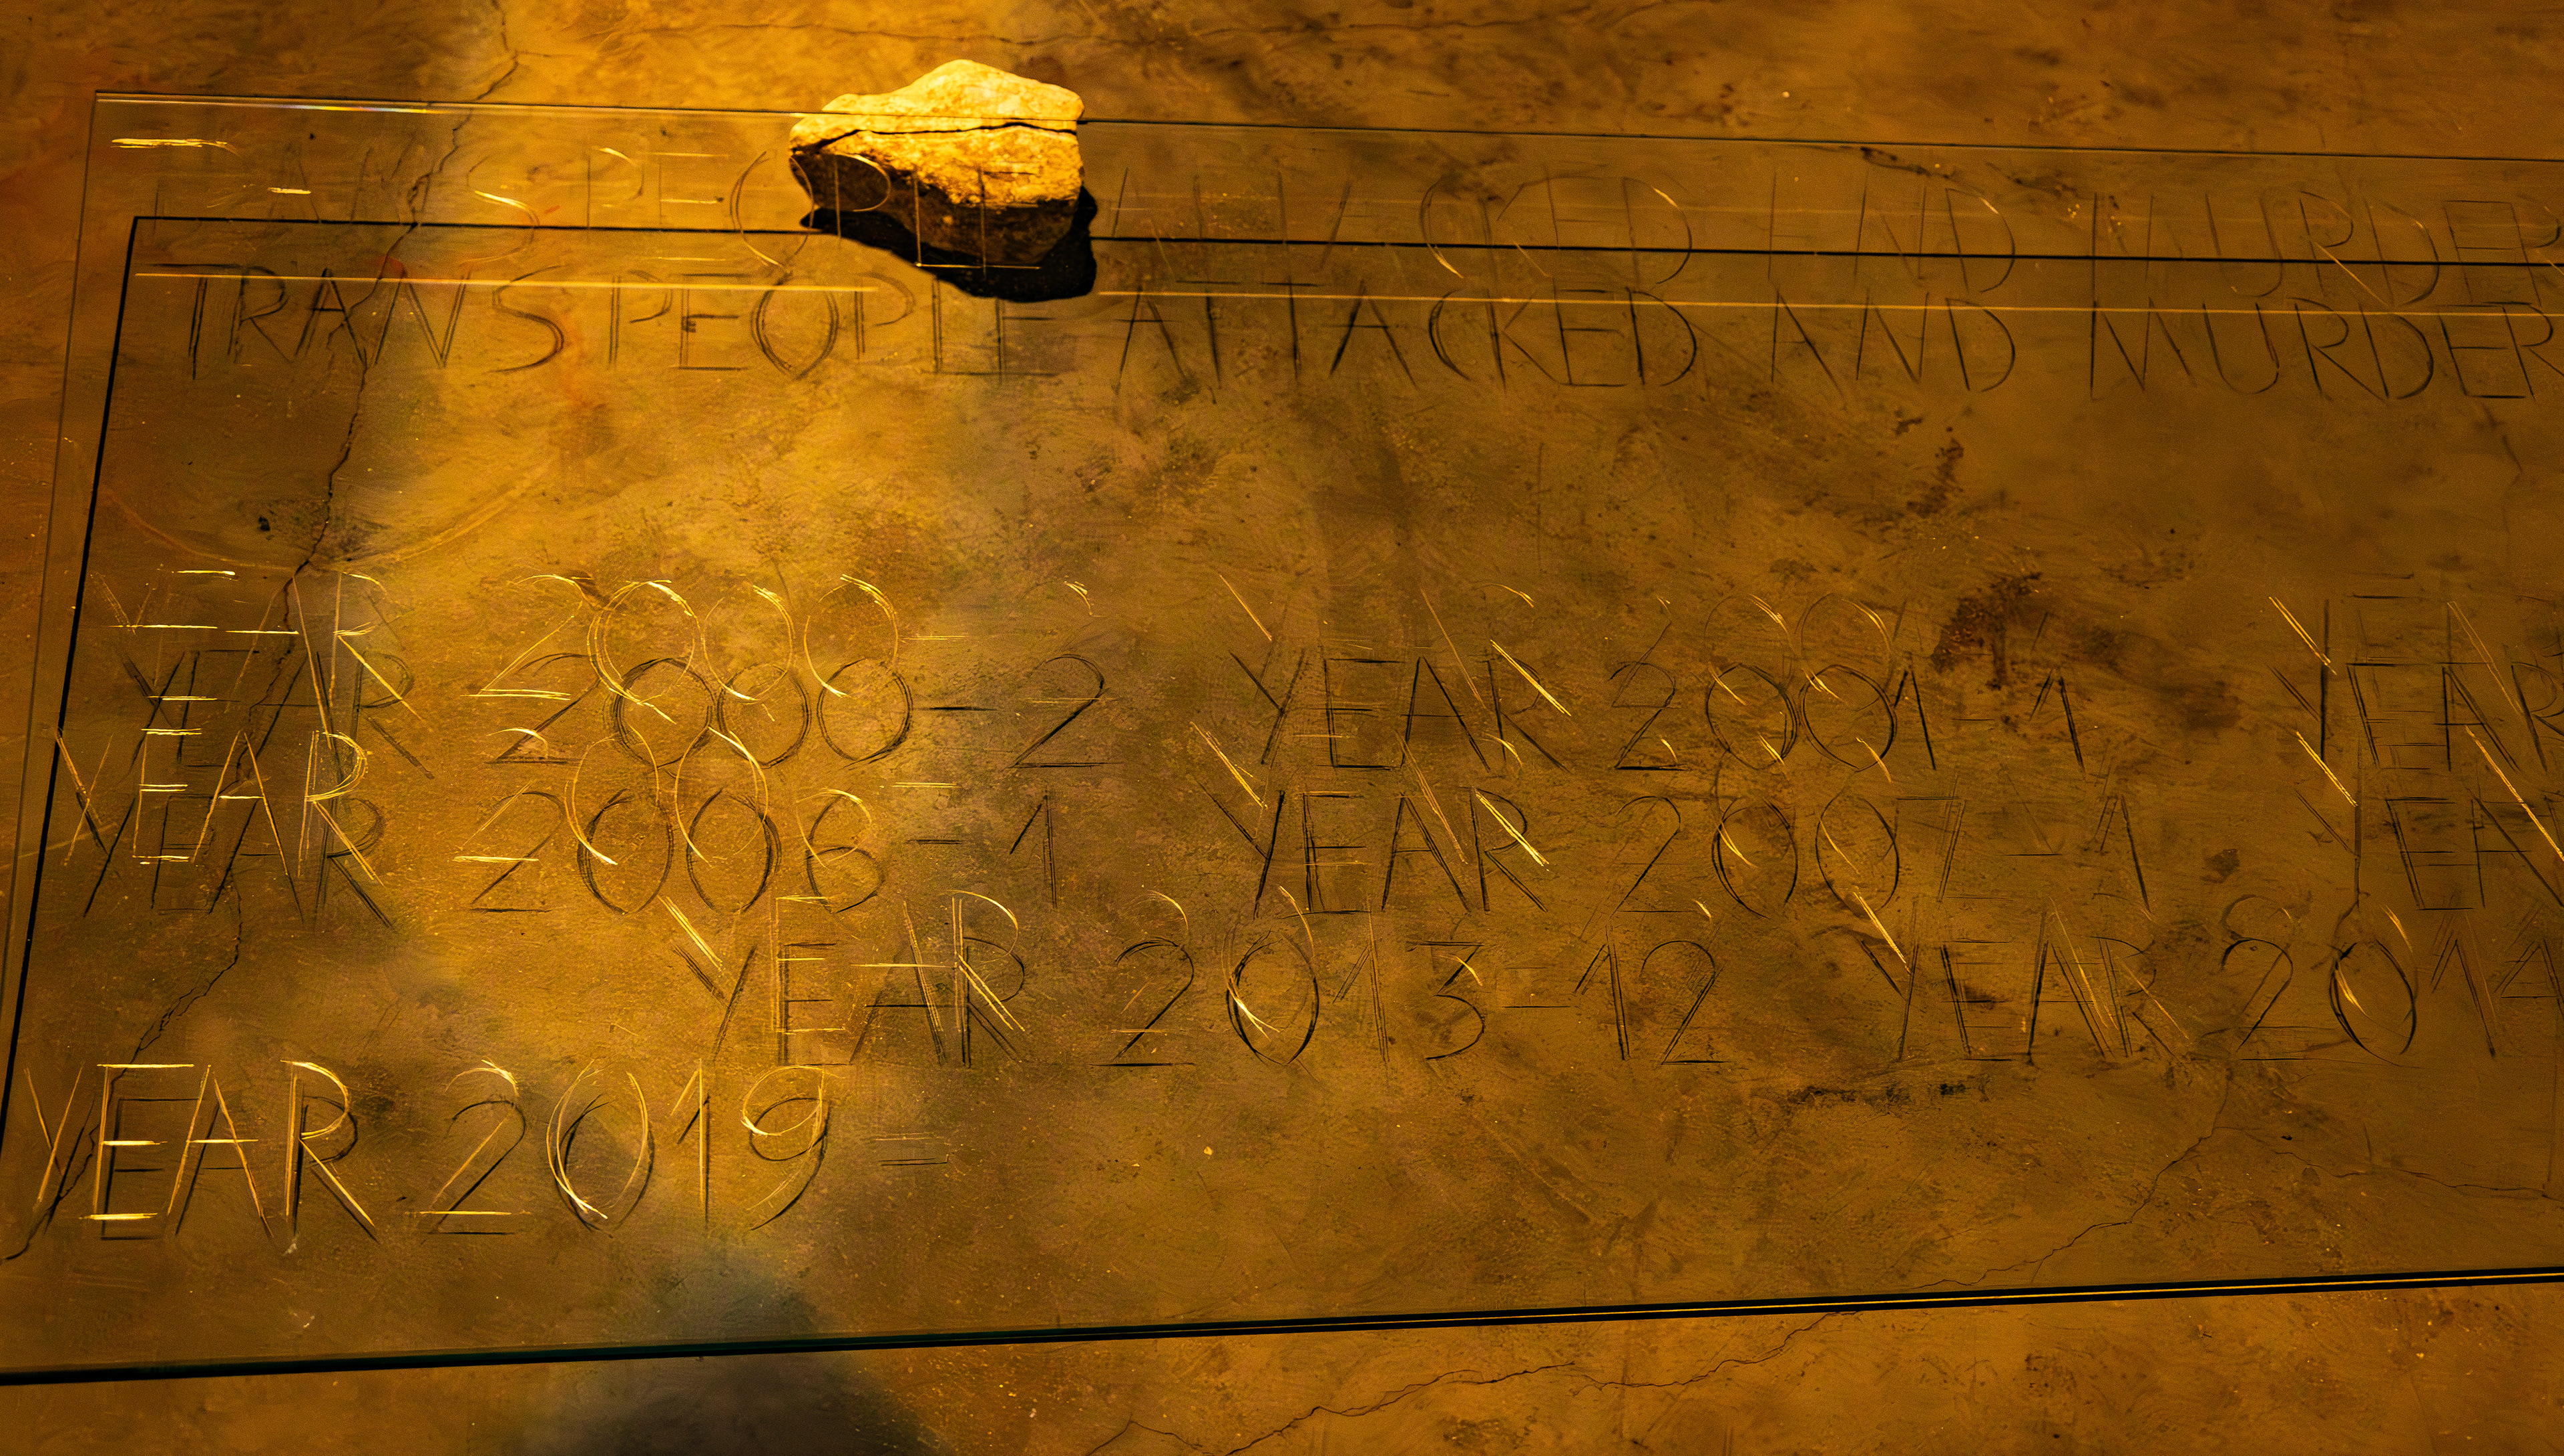 TRANS PEOPLE ATTACKED AND MURDER
YEAR 2000 - 2 YEAR 2001 - 1 YEAR
YEAR 2006 - 1 YEAR 2007 - 1 YEAR
YEAR 2013 - 12 YEAR 2014
YEAR 2019 =